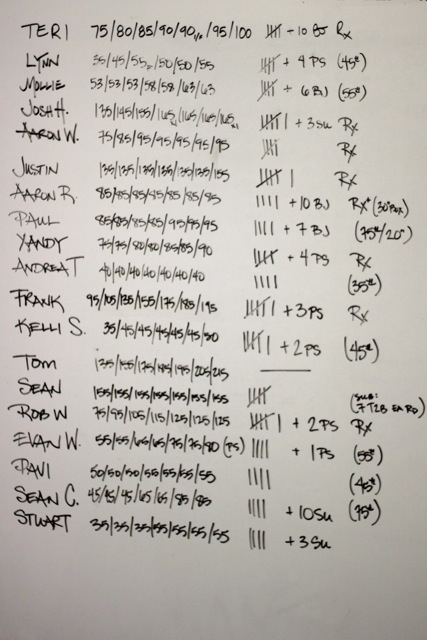 TERI 75/80/85/90/90/95/100 |||| - 10 BJ Rx
LYNN 35/45/55/50/50/55 |||| + 4 PS (45#)
MOLLIE 53/53/53/58/58/63/63 |||| + 6 BJ (55#)
JOSH H. 135/145/155/165/165/165/165 |||| | + 3 SU Rx
AARON W. 75/85/95/95/95/95/95 |||| Rx
JUSTIN 135/135/135/135/135/135/155 |||| | Rx
AARON R. 85/85/85/85/85/85/85 |||| + 10 BJ Rx* (30" Box)
PAUL 85/85/85/85/95/95/95 |||| + 7 BJ (75#/20")
XANDY 75/75/80/80/85/85/90 |||| + 4 PS Rx
ANDREA T 40/40/40/40/40/40/40 |||| (35#)
FRANK 95/105/135/155/175/185/195 |||| | + 3 PS Rx
KELLI S. 35/45/45/45/45/45/50 |||| | + 2 PS (45#)
TOM 135/155/175/185/195/205/215 —
SEAN 155/155/155/155/155/155/155 |||| (SUB: 7 T2B EA RD)
ROB W 75/95/105/115/125/125/125 |||| | + 2 PS Rx
EVAN W. 55/55/65/65/75/75/80 (PS) |||| + 1 PS (55#)
50/50/50/55/55/55/55 |||| (45#)
SEAN C. 45/85/45/65/65/85/85 |||| + 10 SU (75#)
STUART 35/35/35/55/55/55/55 |||| + 3 SU